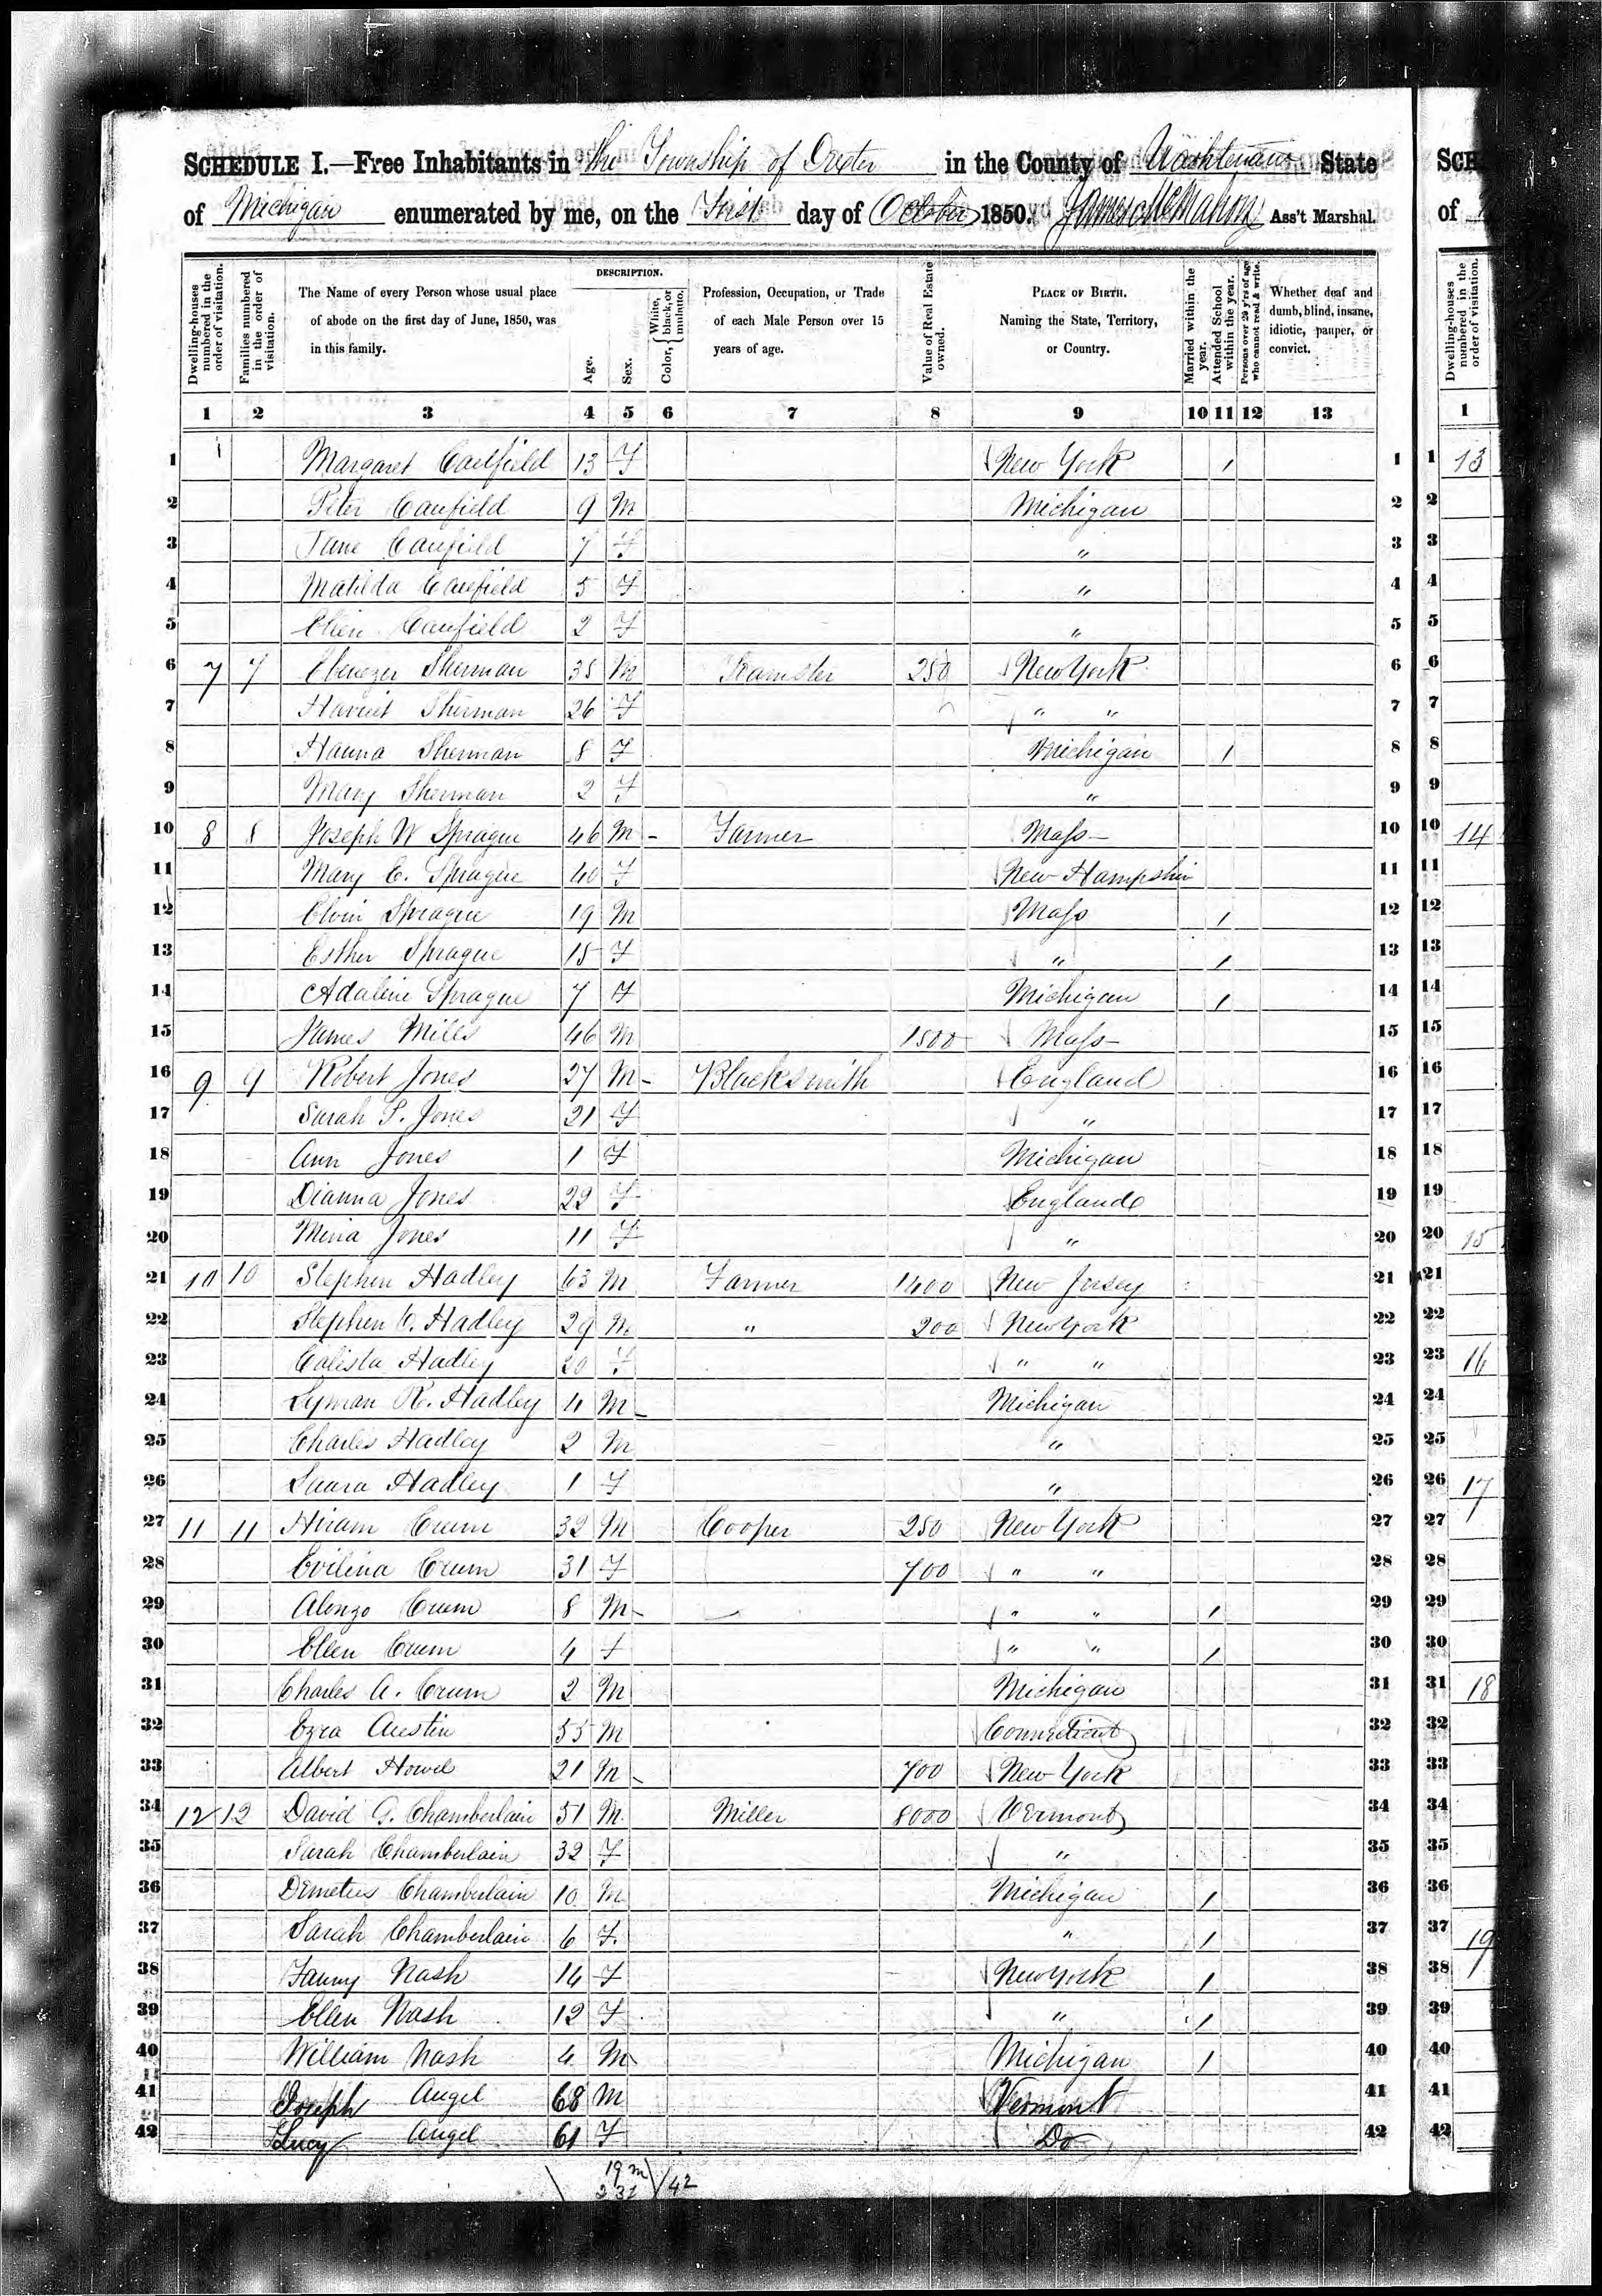 SCHEDULE I.—Free Inhabitants in the Township of Dexter in the County of Washtenaw State
of Michigan enumerated by me, on the First day of October 1850. James McMahon Ass't Marshal.
Dwelling-houses numbered in the order of visitation.
Families numbered in the order of visitation.
The Name of every Person whose usual place of abode on the first day of June, 1850, was in this family.
DESCRIPTION.
Age.
Sex.
Color, { White, black, or mulatto.
Profession, Occupation, or Trade of each Male Person over 15 years of age.
Value of Real Estate owned.
PLACE OF BIRTH. Naming the State, Territory, or Country.
Married within the year.
Attended School within the year.
Persons over 20 y'rs of age who cannot read & write.
Whether deaf and dumb, blind, insane, idiotic, pauper, or convict.
1 2 3 4 5 6 7 8 9 10 11 12 13
1 Margaret Caulfield 13 F New York / 1
2 Peter Caufield 9 M Michigan 2
3 Jane Caufield 7 F " 3
4 Matilda Caufield 5 F " 4
5 Ellen Caufield 2 F " 5
6 7 7 Ebenezer Sherman 35 M Teamster 250 New York 6
7 Harriet Sherman 26 F " " 7
8 Hanna Sherman 8 F Michigan / 8
9 Mary Sherman 2 F " 9
10 8 8 Joseph W Sprague 46 M - Farmer Mass- 10
11 Mary E. Sprague 40 F New Hampshir 11
12 Elvin Sprague 19 M Mass / 12
13 Esther Sprague 15 F " / 13
14 Adaline Sprague 7 F Michigan / 14
15 James Mills 46 M 1500 Mass- 15
16 9 9 Robert Jones 27 M - Blacksmith England 16
17 Sarah P. Jones 21 F " 17
18 Ann Jones 1 F Michigan 18
19 Dianna Jones 22 F England 19
20 Mina Jones 11 F " 20
21 10 10 Stephen Hadley 63 M Farmer 1400 New Jersey 21
22 Stephen C. Hadley 29 M " 200 New York 22
23 Calista Hadley 20 F " " 23
24 Lyman R. Hadley 4 M - Michigan 24
25 Charles Hadley 2 M " 25
26 Laura Hadley 1 F " 26
27 11 11 Hiram Crum 32 M Cooper 250 New York 27
28 Evilina Crum 31 F 700 " " 28
29 Alonzo Crum 8 M - " " / 29
30 Ellen Crum 4 F " " / 30
31 Charles A. Crum 2 M Michigan 31
32 Ezra Austin 55 M Connecticut 32
33 Albert Howd 21 M - 700 New York 33
34 12 12 David G. Chamberlain 51 M. Miller 8000 Vermont 34
35 Sarah Chamberlain 32 F " 35
36 Demetus Chamberlain 10 M Michigan / 36
37 Sarah Chamberlain 6 F. " / 37
38 Fanny Nash 14 F New York / 38
39 Ellen Nash 12 F " / 39
40 William Nash 4 M Michigan / 40
41 Joseph Angel 68 M Vermont 41
42 Lucy Angel 61 F Do 42
19 m
23 f / 42
SCH
of
Dwelling-houses numbered in the order of visitation.
1
1 13
2
3
4
5
6
7
8
9
10 14
11
12
13
14
15
16
17
18
19
20 15
21
22
23 16
24
25
26 17
27
28
29
30
31 18
32
33
34
35
36
37 19
38
39
40
41
42